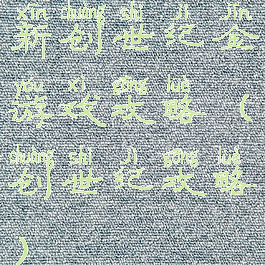 xīn chuàng shì jì jīn
新创世纪金
yóu xì gōng lüè
游戏攻略（
chuàng shì jì gōng lüè
创世纪攻略
）